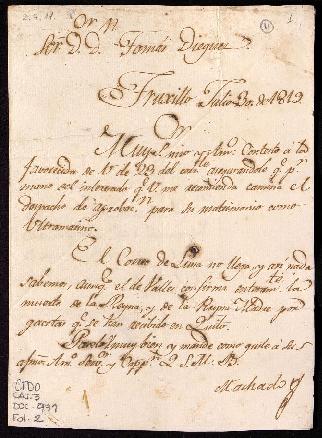 Sor. D. D. Tomás Dieguez
Truxillo Julio 30. de 1819.
Muy Sor. mio y Amo. Contexto a la
favorecida de V. de 29 del corrte. asegurandole qe. pr.
mano del interesado qe. V. me recomienda camina el
despacho de aprobon. para su matrimonio como
Ultramarino.
El Correo de Lima no llega, y asi nada
sabemos, aunqe. el de Valles confirma enteramte. la
muerte de la Reyna, y de la Reyna Madre por
gacetas qe. se han recibido en Quito.
Paselo muy bien, y mande como guste a su
afmo. Amo. Servor. y Cappn. Q. S. M. B.
Machado
CTDO
CAJ. 3
DOC. 977
Fol. 2